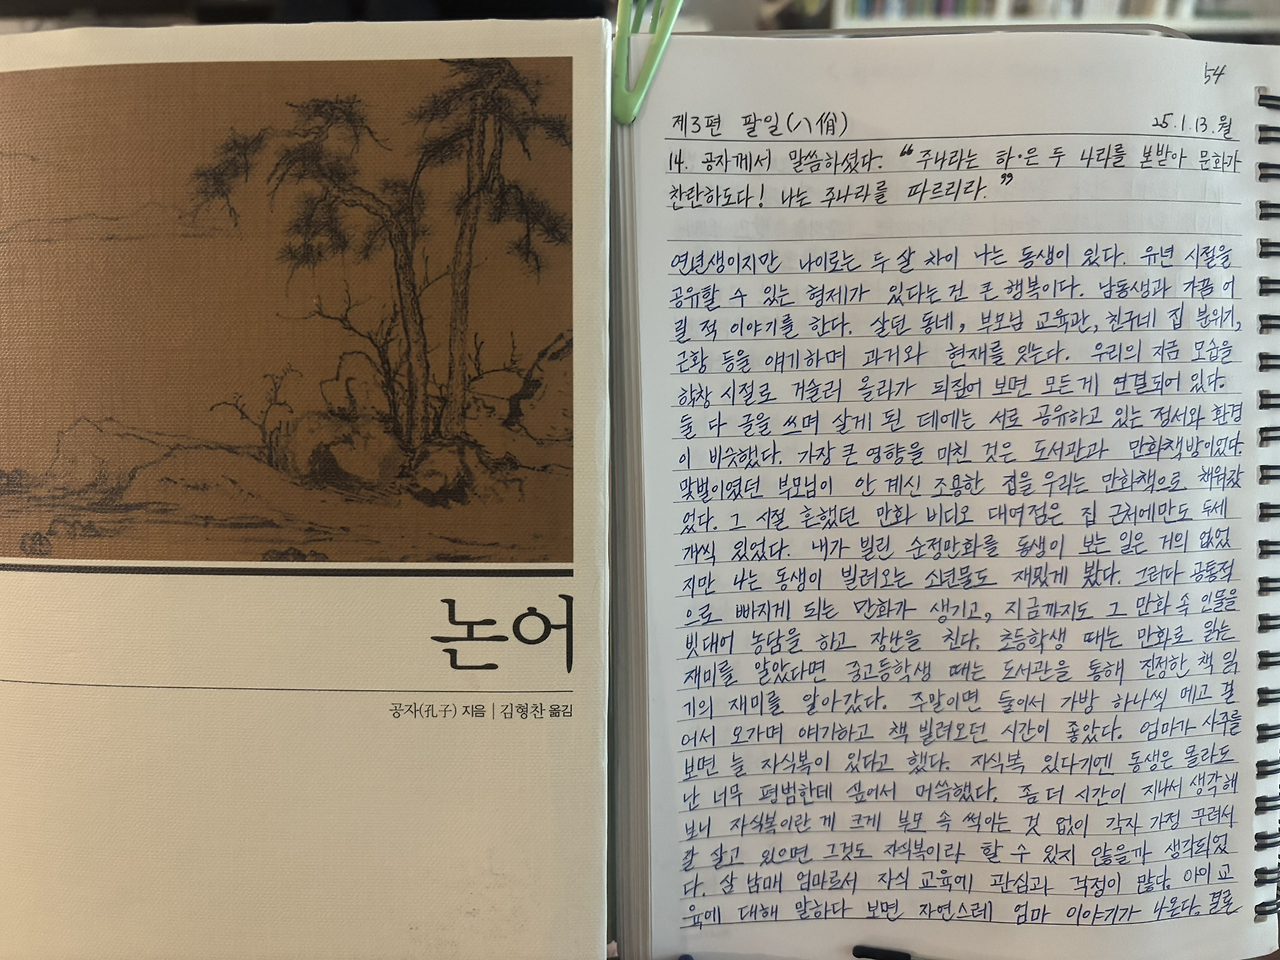 논어
공자(孔子) 지음 | 김형찬 옮김
54
제3편 팔일(八佾) 25.1.13.월
14. 공자께서 말씀하셨다. "주나라는 하·은 두 나라를 본받아 문화가
찬란하도다! 나는 주나라를 따르리라."
연년생이지만 나이로는 두 살 차이 나는 동생이 있다. 유년 시절을
공유할 수 있는 형제가 있다는 건 큰 행복이다. 남동생과 가끔 어
릴 적 이야기를 한다. 살던 동네, 부모님 교육관, 친구네 집 분위기,
근황 등을 얘기하며 과거와 현재를 잇는다. 우리의 지금 모습을
학창 시절로 거슬러 올라가 되짚어 보면 모든게 연결되어 있다.
둘 다 글을 쓰며 살게 된 데에는 서로 공유하고 있는 정서와 환경
이 비슷했다. 가장 큰 영향을 미친 것은 도서관과 만화책방이었다.
맞벌이였던 부모님이 안 계신 조용한 집을 우리는 만화책으로 채워갔
었다. 그 시절 흔했던 만화 비디오 대여점은 집 근처에만도 두세
개씩 있었다. 내가 빌린 순정만화를 동생이 보는 일은 거의 없었
지만 나는 동생이 빌려오는 소년물도 재밌게 봤다. 그러다 공통적
으로 빠지게 되는 만화가 생기고, 지금까지도 그 만화 속 인물을
빗대어 농담을 하고 장난을 친다. 초등학생 때는 만화로 읽는
재미를 알았다면 중고등학생 때는 도서관을 통해 진정한 책 읽
기의 재미를 알아갔다. 주말이면 둘이서 가방 하나씩 메고 걸
어서 오가며 얘기하고 책 빌려오던 시간이 좋았다. 엄마가 사주를
보면 늘 자식복이 있다고 했다. 자식복 있다기엔 동생은 몰라도
난 너무 평범한데 싶어서 머쓱했다. 좀 더 시간이 지나서 생각해
보니 자식복이란 게 크게 부모 속 썩이는 것 없이 각자 가정 꾸려서
잘 살고 있으면 그것도 자식복이라 할 수 있지 않을까 생각되었
다. 삼 남매 엄마로서 자식 교육에 관심과 걱정이 많다. 아이 교
육에 대해 말하다 보면 자연스레 엄마 이야기가 나온다. 물론